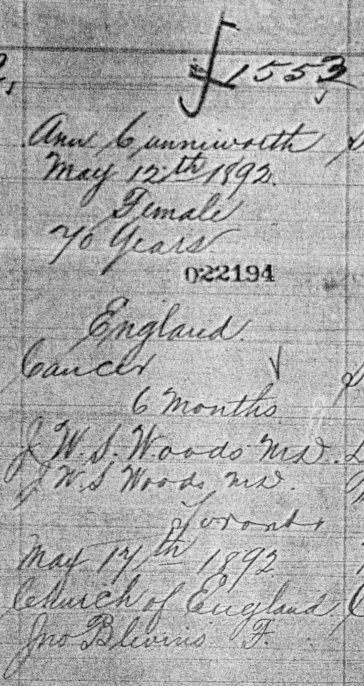 £1553
Ann Cunniworth
May 12th 1892.
Female
70 Years
022194
England.
Cancer
6 Months
J W. S. Woods M.D.
J W. S Woods M.D.
Toronto
May 17th 1892
Church of England.
Jno Blevins F.